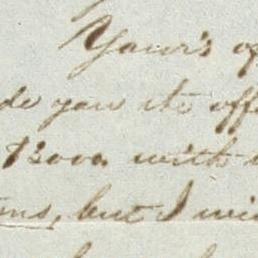 Your's of
de you its off
$3000. with
ms, but I wi